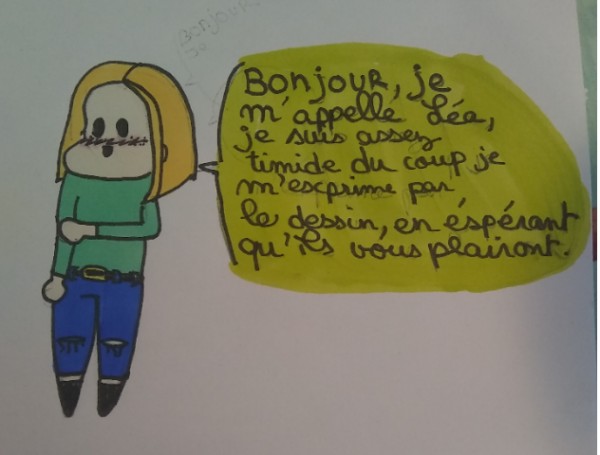 Bonjour
Je
Bonjour, je
m'appelle Léa,
je suis assez
timide du coup je
m'exprime par
le dessin, en éspérant
qu'ils vous plairont.